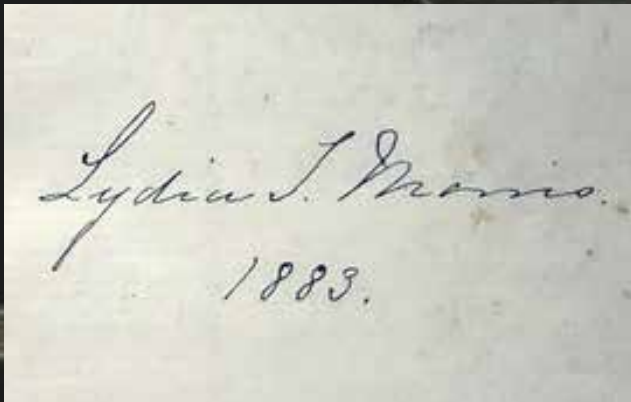 Lydia T. Morris.
1883.